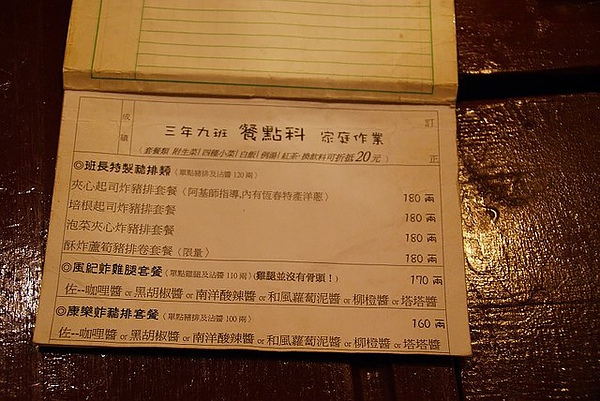 成績
訂正
三年九班 餐點科 家庭作業
(套餐類 附生菜/四種小菜/白飯/例湯/紅茶,換飲料可折低20元)
◎班長特製豬排類(單點豬排及沾醬 120 兩)
夾心起司炸豬排套餐〈阿基師指導,內有恆春特產洋蔥〉 180 兩
培根起司炸豬排套餐 180 兩
泡菜夾心炸豬排套餐 180 兩
酥炸蘆筍豬排卷套餐〈限量〉 180 兩
◎風紀炸雞腿套餐(單點雞腿及沾醬 110 兩)(雞腿並沒有骨頭!) 170 兩
佐--咖哩醬 or 黑胡椒醬 or 南洋酸辣醬 or 和風蘿蔔泥醬 or 柳橙醬 or 塔塔醬
◎康樂炸豬排套餐(單點豬排及沾醬 100 兩) 160 兩
佐--咖哩醬 or 黑胡椒醬 or 南洋酸辣醬 or 和風蘿蔔泥醬 or 柳橙醬 or 塔塔醬